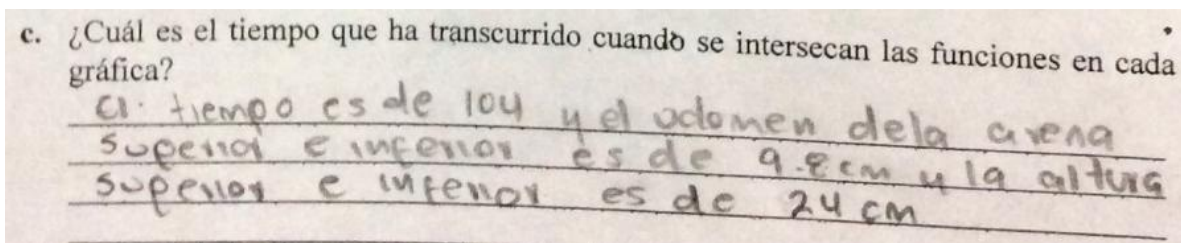 c. ¿Cuál es el tiempo que ha transcurrido cuando se intersecan las funciones en cada
gráfica?
el tiempo es de 104 y el volomen dela arena
superior e inferior es de 9.8cm y la altura
superior e inferior es de 24 cm